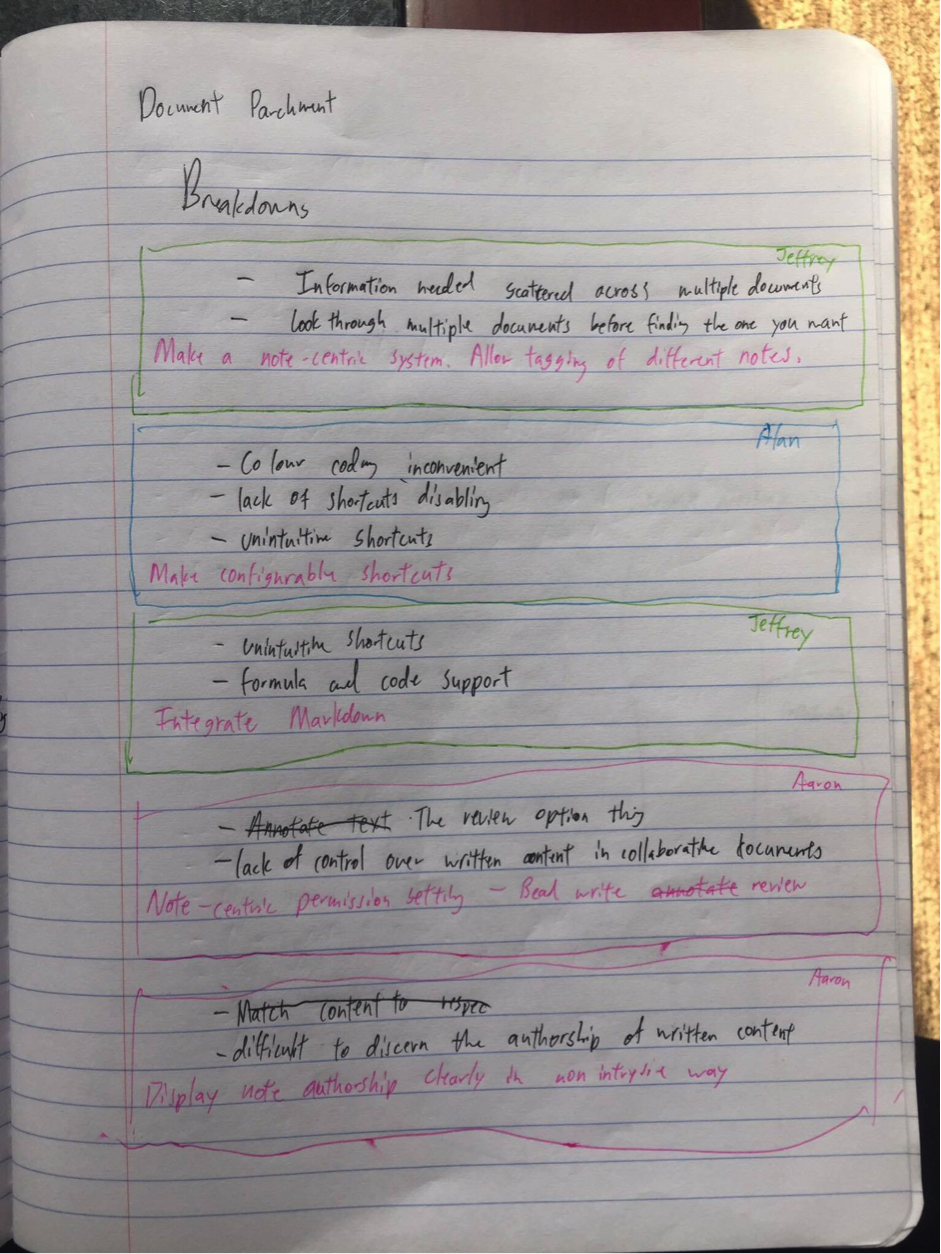 Document Parchment
Breakdowns
Jeffrey
- Information needed scattered across multiple documents
- look through multiple documents before finding the one you want
Make a note-centric system. Allow tagging of different notes.
Alan
- Colour coding inconvenient
- lack of shortcuts disabling
- Unintuitive shortcuts
Make configurable shortcuts
Jeffrey
- unintuitive shortcuts
- formula and code support
Integrate Markdown
Aaron
- Annotate text . The review option thing
- lack of control over written content in collaborative documents
Note-centric permission setting - Read write annotate review
Aaron
- Match content to
- difficult to discern the authorship of written content
Display note authorship clearly in non intrusive way